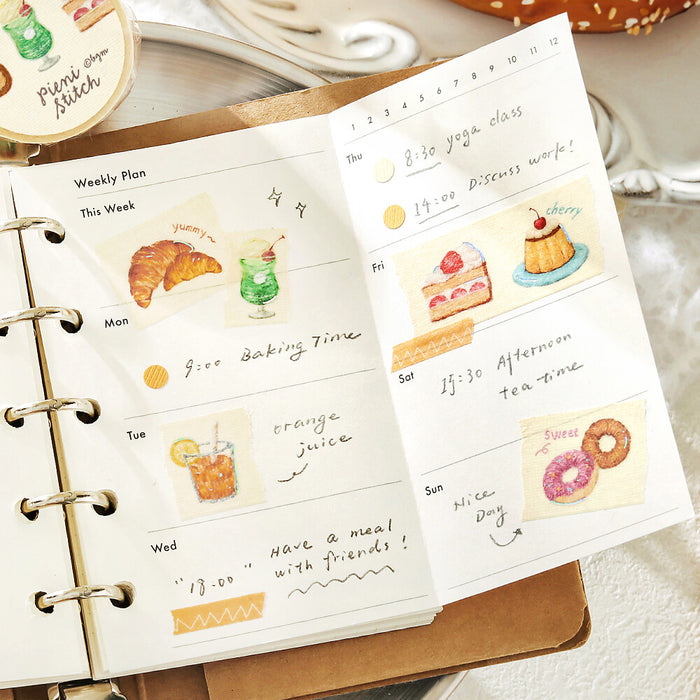 pieni
stitch
©bgm
Weekly Plan
This Week
yummy~
Mon
9:00 Baking Time
Tue
orange
juice
Wed
"18:00"
Have a meal
with friends!
1 2 3 4 5 6 7 8 9 10 11 12
Thu
8:30 yoga class
14:00 Discuss work!
Fri
cherry
Sat
15:30 Afternoon
tea time
Sun
Sweet
Nice
Day